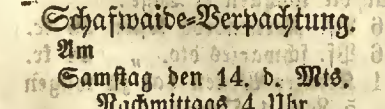 Schafwaide-Verpachtung.
Am
Samstag den 14. d. Mts.
Nachmittags 4 Uhr